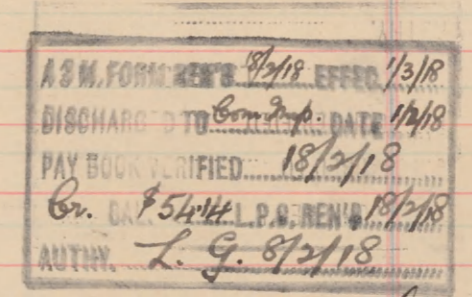 A 3 M. FORM REN'D 18/2/18 EFFEC. 1/3/18
DISCHARGED TO Com Imp. DATE 1/2/18
PAY BOOK VERIFIED 18/2/18
Cr. BAL. $54.14 L.P.C. REN'D 18/2/18
AUTHY. L. G. 8/2/18